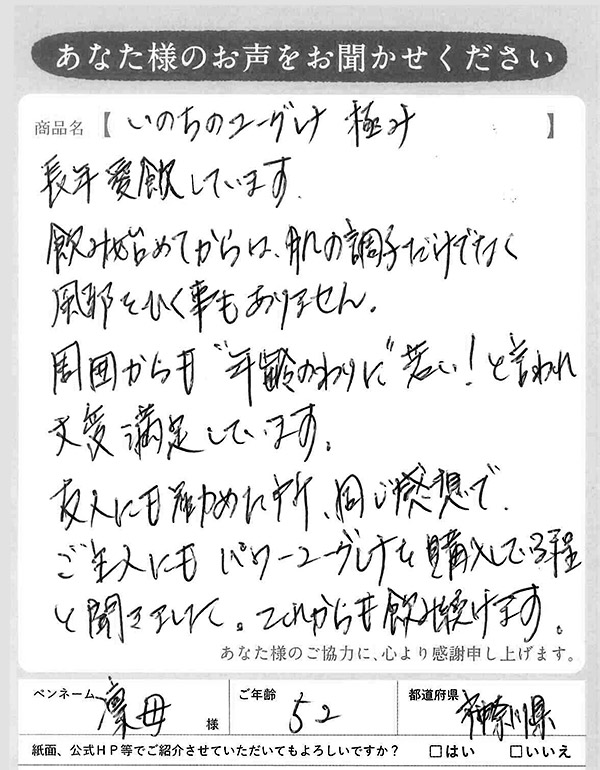 あなた様のお声をお聞かせください
商品名【いのちのユーグレナ 極み】
長年愛飲しています.
飲み始めてからは、肌の調子だけでなく
風邪をひく事もありません.
周囲からも"年齢のわりに"若い!と言われ
大変満足しています.
友人にも勧めた所、同じ感想で.
ご主人にも パワーユーグレナを購入している程
と聞きました。これからも飲み続けます.
あなた様のご協力に、心より感謝申し上げます。
ペンネーム 凛母 様 ご年齢 52 都道府県 神奈川県
紙面、公式HP等でご紹介させていただいてもよろしいですか? □はい □いいえ